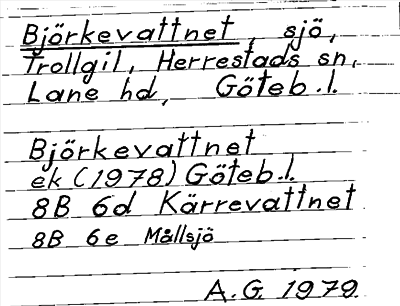 Björkevattnet, sjö,
Trollgil, Herrestads sn,
Lane hd, Göteb.l.
Björkevattnet
ek (1978) Göteb.l.
8B 6d Kärrevattnet
8B 6e Mållsjö
A.G. 1979.